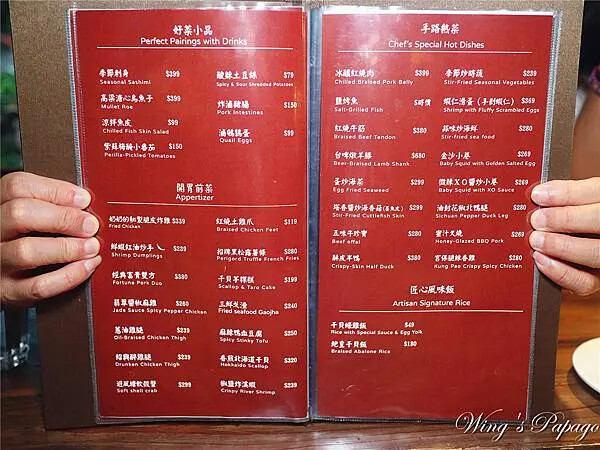 好菜小品
Perfect Pairings with Drinks
季節刺身 $399
Seasonal Sashimi
高粱溏心烏魚子 $399
Mullet Roe
涼拌魚皮 $99
Chilled Fish Skin Salad
紫蘇梅釀小番茄 $150
Perilla-Pickled Tomatoes
酸辣土豆絲 $79
Spicy & Sour Shredded Potatoes
炸滷豬腸 $150
Pork Intestines
滷鵪鶉蛋 $99
Quail Eggs
開胃前菜
Appertizer
奶奶的和製脆皮炸雞 $339
Fried Chicken
鮮蝦紅油炒手 $239
Shrimp Dumplings
經典富貴雙方 $380
Fortune Pork Duo
翡翠醬椒麻雞 $260
Jade Sauce Spicy Pepper Chicken
蔥油雞腿 $239
Oil-Braised Chicken Thigh
紹興醉雞腿 $239
Drunken Chicken Thigh
避風塘軟殼蟹 $299
Soft shell crab
紅燒土雞爪 $119
Braised Chicken Feet
招牌黑松露薯條 $280
Perigord Truffle French Fries
干貝芋棵粿 $280
Scallop & Taro Cake
三鮮生煎 $240
Fried seafood Gaojha
麻辣鴨血豆腐 $250
Spicy Stinky Tofu
香煎北海道干貝 $320
Hokkaido Scallop
椒鹽炸溪蝦 $239
Crispy River Shrimp
手路熱菜
Chef's Special Hot Dishes
冰鎮紅燒肉 $399
Chilled Braised Pork Belly
鹽烤魚 $時價
Salt-Grilled Fish
紅燒牛筋 $380
Braised Beef Tendon
台啤燉羊膝 $680
Beer-Braised Lamb Shank
蛋炒海菜 $380
Egg Fried Seaweed
塔香醬炒海香菇(墨魚皮) $299
Stir-Fried Cuttlefish Skin
五味牛珍寶 $280
Beef offal
酥皮半鴨 $380
Crispy-Skin Half Duck
季節炒時蔬 $239
Stir-Fried Seasonal Vegetables
蝦仁滑蛋(手剝蝦仁) $369
Shrimp with Fluffy Scrambled Eggs
蒜味炒海鮮 $280
Stir-fried sea food
金沙小卷 $269
Baby Squid with Golden Salted Egg
微辣XO醬炒小卷 $269
Baby Squid with XO Sauce
油封花椒北鴨腿 $280
Sichuan Pepper Duck Leg
蜜汁叉燒 $269
Honey-Glazed BBQ Pork
宮保腿辣香雞 $280
Kung Pao Crispy Spicy Chicken
匠心風味飯
Artisan Signature Rice
干貝蠔雞飯 $49
Rice with Special Sauce & Egg Yolk
鮑皇干貝飯 $180
Braised Abalone Rice
Wing's Papago